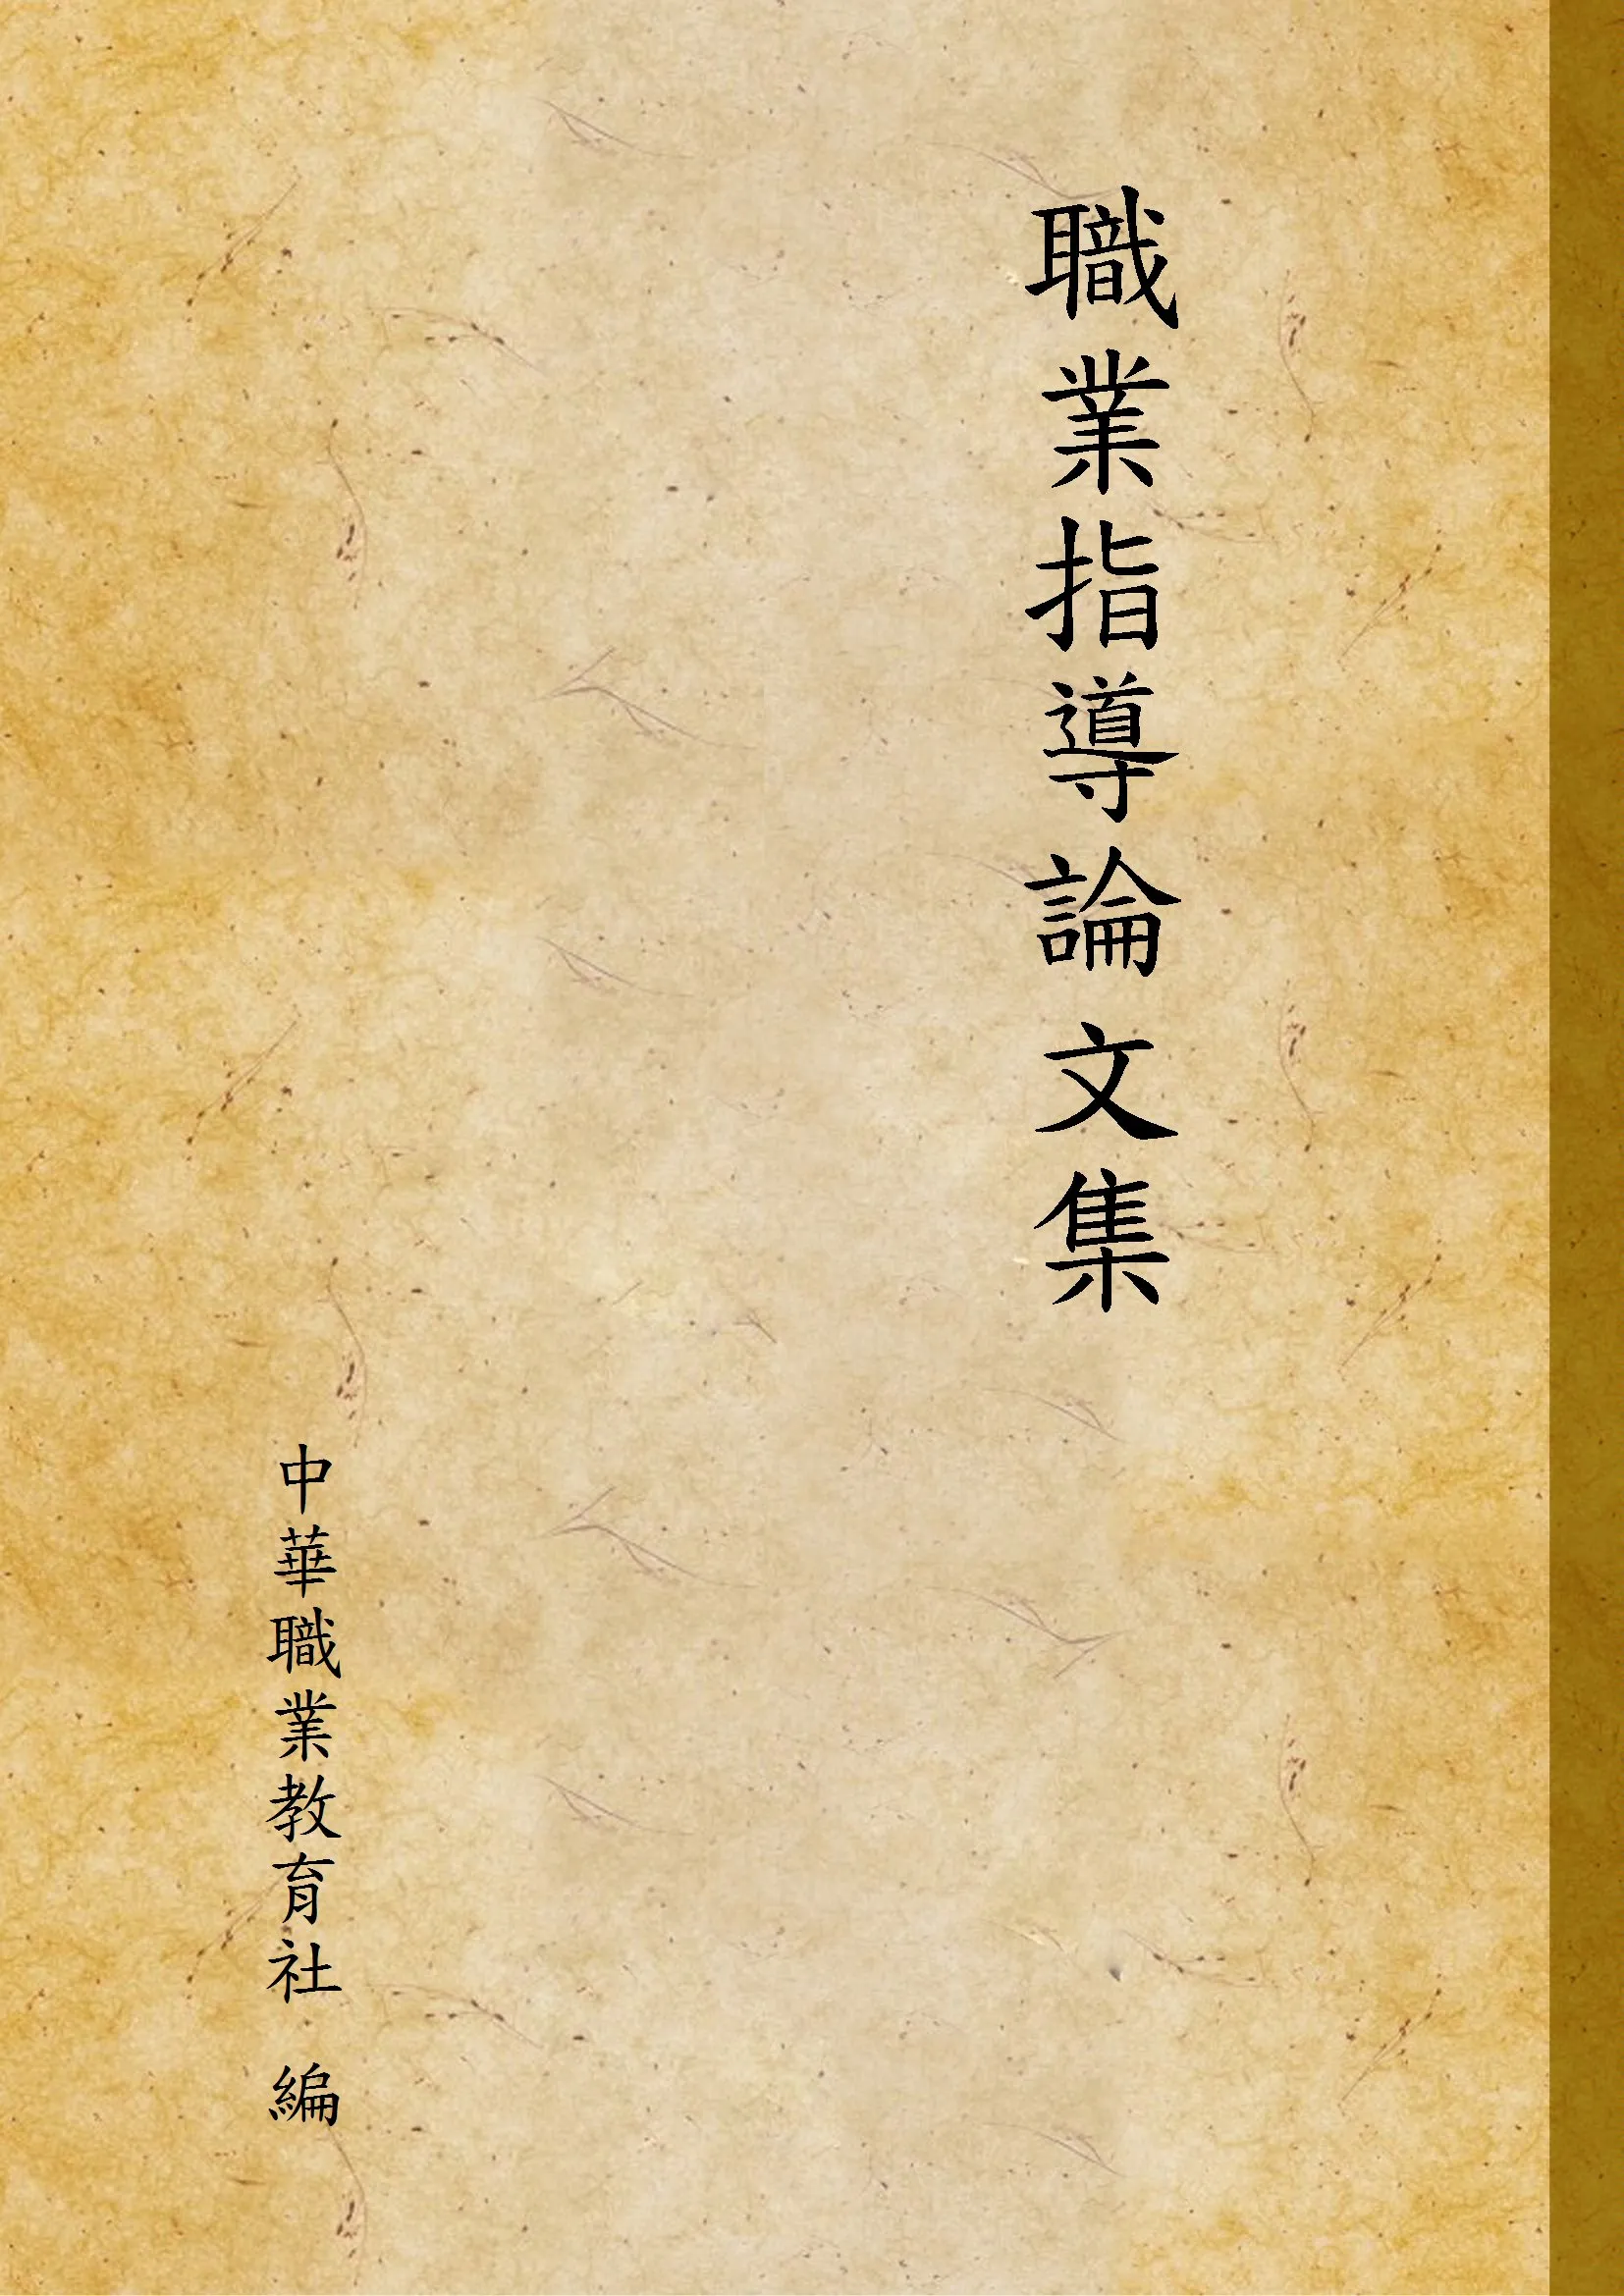 職業指導論文集
中華職業教育社 編